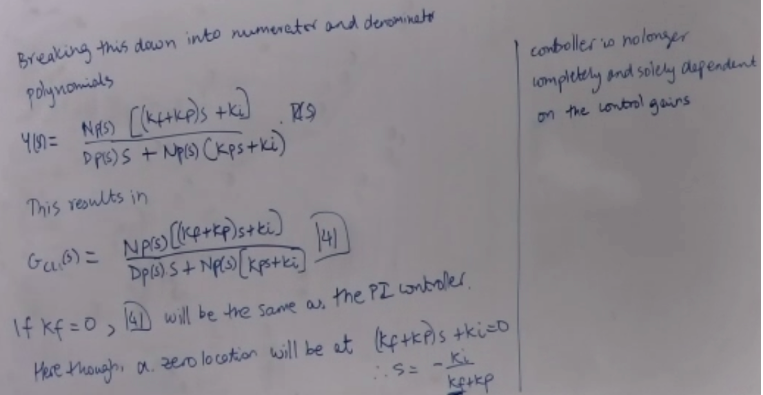 Breaking this down into numerator and denominator
polynomials
Y(s) = Np(s) [(kf+kp)s + ki] / Dp(s)s + Np(s)(kps+ki) . R(s)
This results in
Gcl(s) = Np(s)[(kf+kp)s+ki] / Dp(s)s + Np(s)[kps+ki] |4|
If kf=0, |4| will be the same as the PI controller.
Here though, a zero location will be at (kf+kp)s + ki=0
∴ s = - ki / kf+kp
controller is no longer
completely and solely dependent
on the control gains